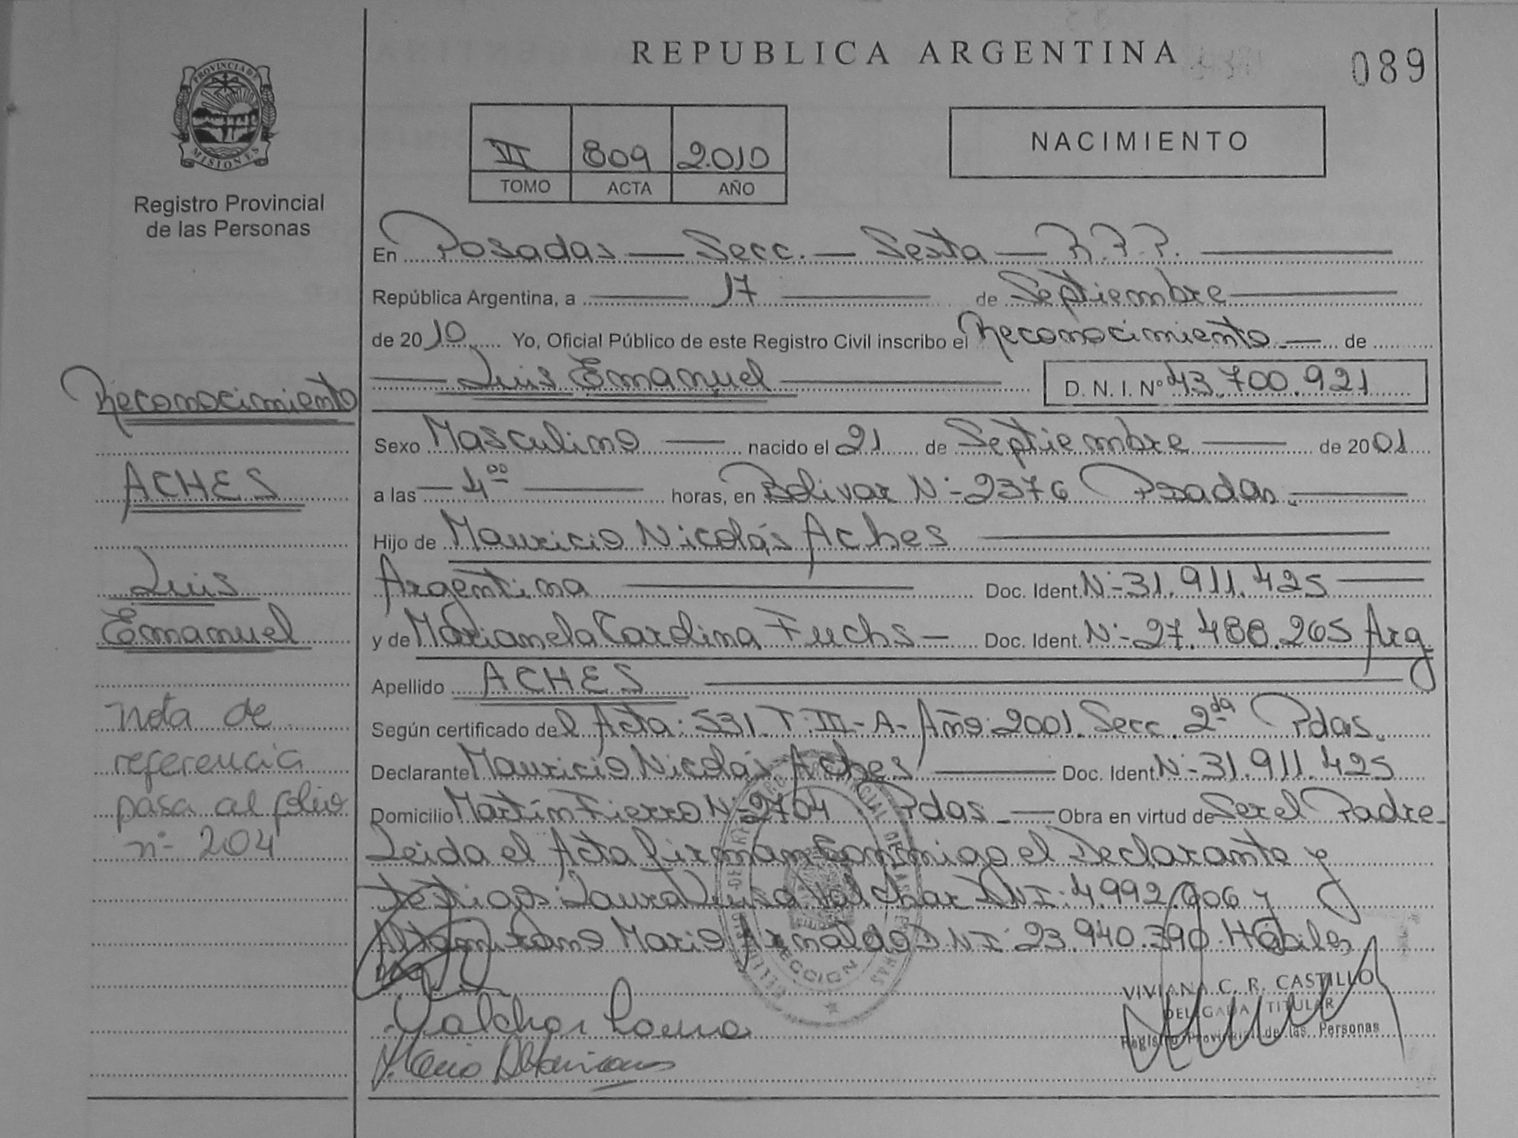 REPUBLICA ARGENTINA
089
PROVINCIA DE MISIONES
Registro Provincial
de las Personas
809 2.010
TOMO ACTA AÑO
NACIMIENTO
En Posadas — Secc. — Sesta — R.P.P.
República Argentina, a 17 de Septiembre
de 2010 Yo, Oficial Público de este Registro Civil inscribo el Reconocimiento de
Luis Emanuel D. N. I. Nº 43.700.921
Sexo Masculino nacido el 21 de Septiembre de 2001
a las 4ºº horas, en Bolivar Nº 2376 Posadas.
Hijo de Mauricio Nicolás Aches
Argentina Doc. Ident. Nº 31.911.425
y de Marianela Carolina Fuchs Doc. Ident. Nº 27.488.265 Arg
Apellido ACHES
Según certificado del Acta: 531 T: III-A- Año: 2001. Secc. 2da Pdas.
Declarante Mauricio Nicolás Aches Doc. Ident. Nº 31.911.425
Domicilio Martín Fierro Nº 2704 Pdas Obra en virtud de Ser el Padre
Leida el Acta firman Conmigo el Declarante y
testigos: Laura Luisa Valchar DNI: 4.992.906 y
Altamirano Mario Arnaldo DNI: 23.940.390. Hábiles
Valchar Laura
Mario Altamirano
VIVIANA C. R. CASTILLO
DELEGADA TITULAR
Registro Provincial de las Personas
Reconocimiento
ACHES
Luis
Emanuel
nota de
referencia
pasa al folio
nº 204